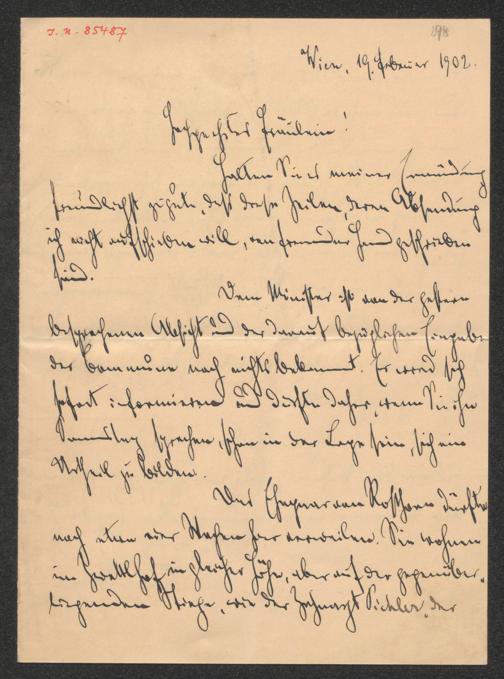 J. N. 85487
198
Wien, 19. Februar 1902.
Hochgeehrtes Fräulein!
Halten Sie es meiner Ermüdung
freundlichst zugute, daß diese Zeilen, deren Absendung
ich nicht aufschieben will, von fremder Hand geschrieben
sind.
Dem Minister ist von der gestern
besprochenen Absicht und der darauf bezüglichen Eingabe
der Commune noch nichts bekannt. Er wird sich
sofort informieren und dürfte daher, wenn Sie ihn
Samstag sprechen, schon in der Lage sein, sich ein
Urtheil zu bilden.
Das Ehepaar von Rosthorn dürfte
noch etwa vier Wochen hier verweilen. Sie wohnen
im Zwettlhof, in gleicher Höhe, aber auf der gegenüber-
liegenden Stiege, wie der Zahnarzt der